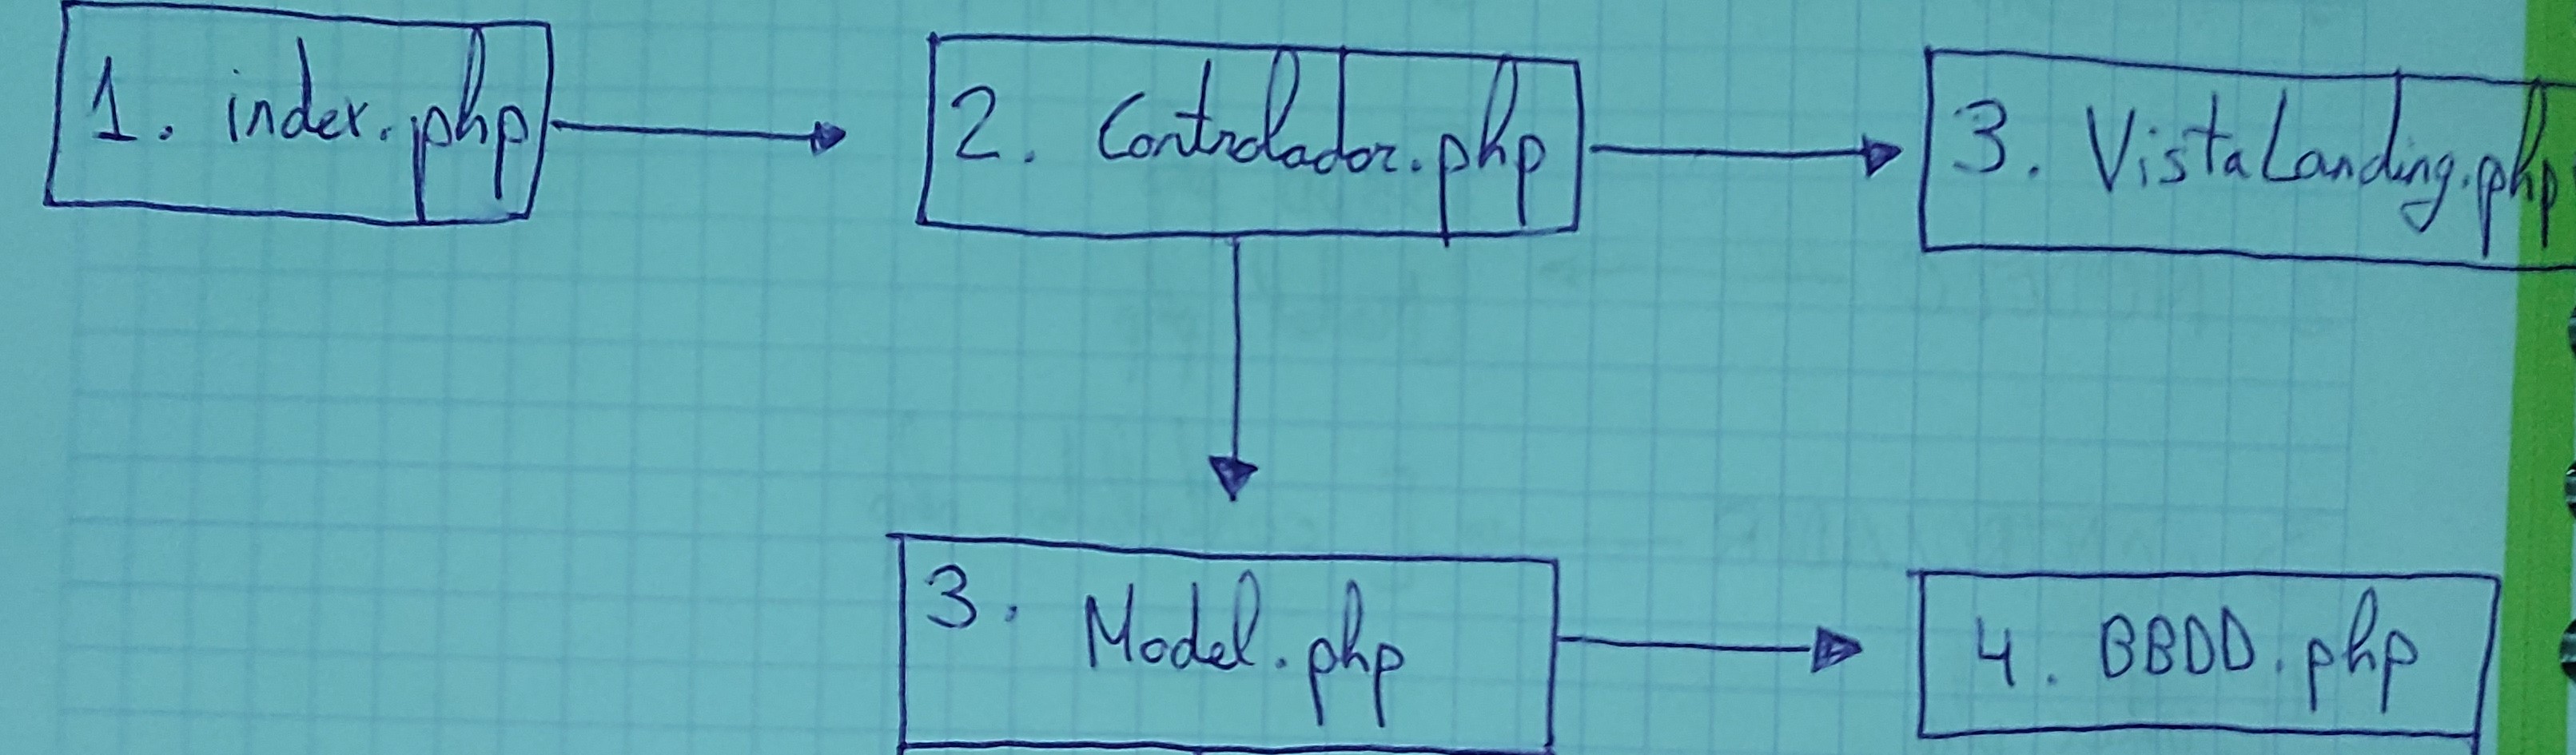 1. index.php
2. Controlador.php
3. VistaLanding.php
3. Model.php
4. BBDD.php